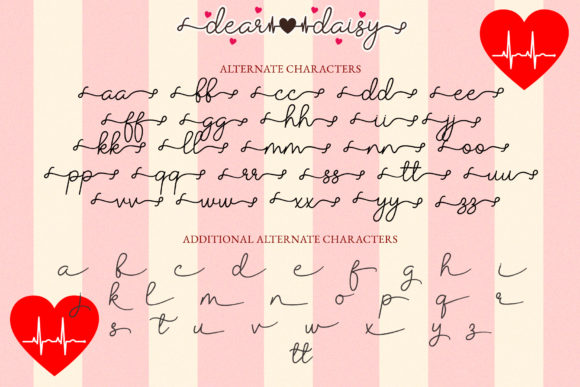 dear daisy
ALTERNATE CHARACTERS
aa bb cc dd ee
ff gg hh ii jj
kk ll mm nn oo
pp qq rr ss tt uu
vv ww xx yy zz
ADDITIONAL ALTERNATE CHARACTERS
a b c d e f g h i
j k l m n o p q r
s t u v w x y z
tt